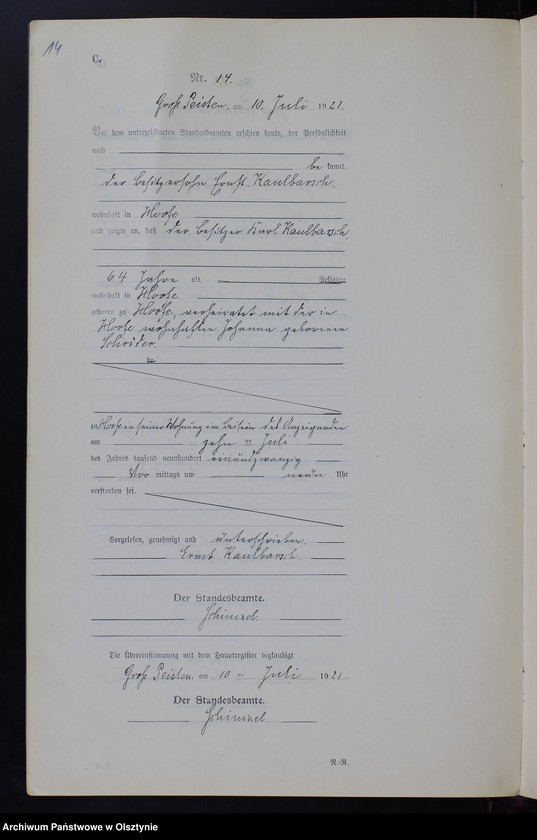 14
C.
Nr. 14.
Groß Peisten, am 10. Juli 1921.
Vor dem unterzeichneten Standesbeamten erschien heute, der Persönlichkeit
nach
be kannt,
der Besitzersohn Ernst Kaulbarsch,
wohnhaft in Hoofe
und zeigte an, daß der Besitzer Karl Kaulbarsch,
64 Jahre alt, Religion
wohnhaft in Hoofe
geboren zu Hoofe, verheiratet mit der in
Hoofe wohnhaften Johanna geborenen
Schröder.
zu Hoofe in seiner Wohnung im Beisein des Anzeigenden
am zehn ten Juli
des Jahres tausend neunhundert einundzwanzig
Vor mittags um neun Uhr
verstorben sei.
Vorgelesen, genehmigt und unterschrieben.
Ernst Kaulbarsch
Der Standesbeamte.
Die Übereinstimmung mit dem Hauptregister beglaubigt
Groß Peisten, am 10 ten Juli 1921.
Der Standesbeamte.
N.-R.
Archiwum Państwowe w Olsztynie